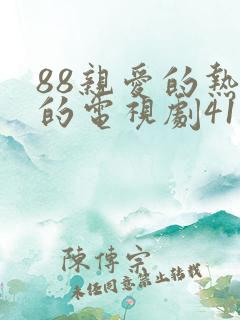 88親愛的熱
的電視劇41
陳傅宗
未经同意禁止转载